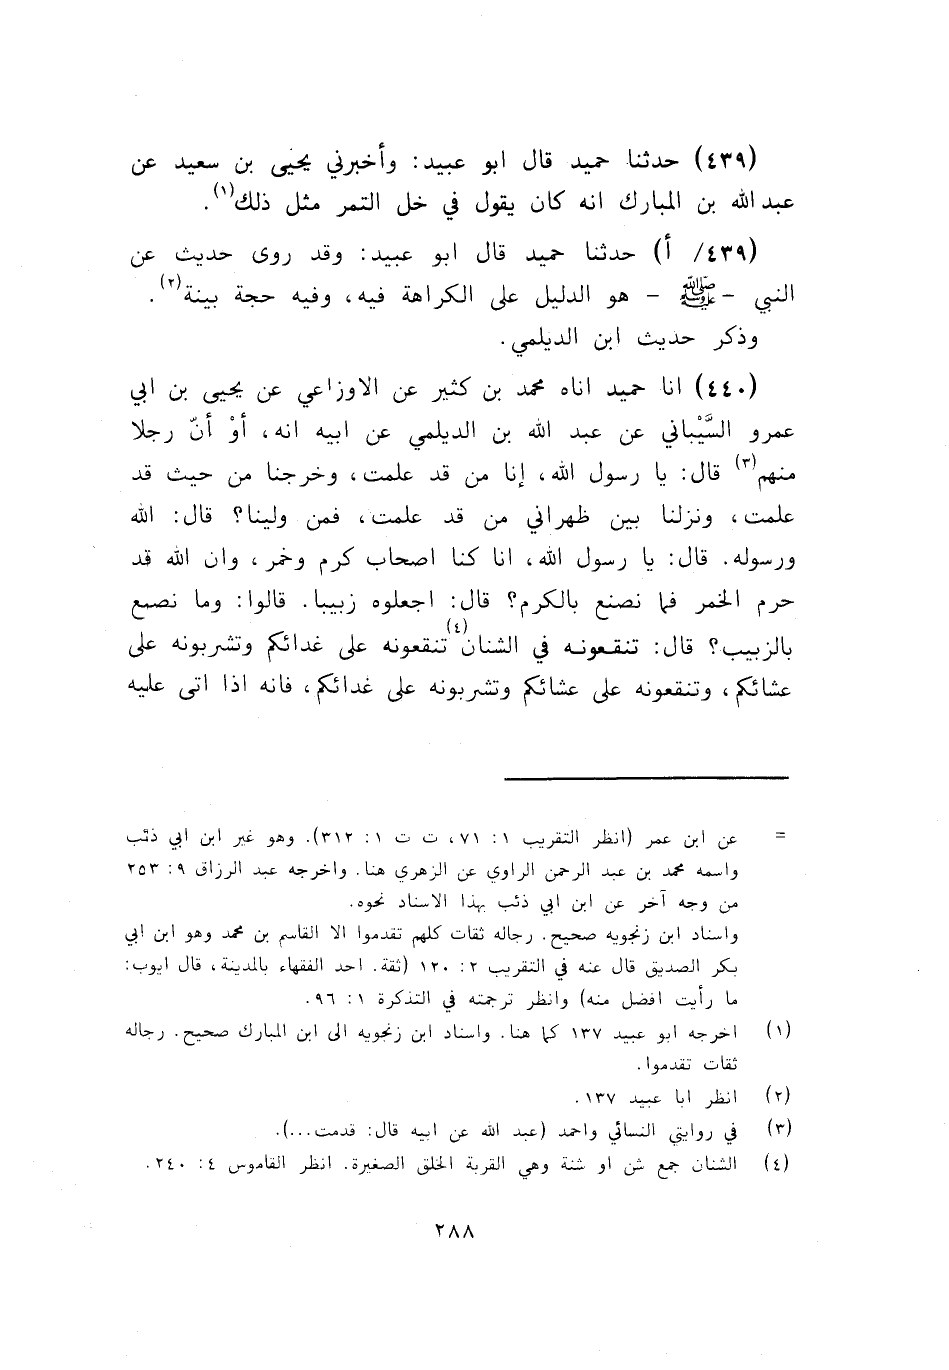 (٤٣٩) حدثنا حميد قال ابو عبيد: وأخبرني يحيى بن سعيد عن
عبد الله بن المبارك انه كان يقول في خل التمر مثل ذلك(١).
(٤٣٩/ أ) حدثنا حميد قال ابو عبيد: وقد روى حديث عن
النبي - ﷺ - هو الدليل على الكراهة فيه، وفيه حجة بينة(٢).
وذكر حديث ابن الديلمي.
(٤٤٠) انا حميد اناه محمد بن كثير عن الاوزاعي عن يحيى بن ابي
عمرو السَّيْباني عن عبد الله بن الديلمي عن ابيه انه، أوْ أنّ رجلا
منهم(٣) قال: يا رسول الله، إنا من قد علمت، وخرجنا من حيث قد
علمت، ونزلنا بين ظهراني من قد علمت، فمن ولينا؟ قال: الله
ورسوله. قال: يا رسول الله، انا كنا اصحاب كرم وخمر، وان الله قد
حرم الخمر فما نصنع بالكرم؟ قال: اجعلوه زبيبا. قالوا: وما نصنع
بالزبيب؟ قال: تنقعونه في الشنان(٤) تنقعونه على غدائكم وتشربونه على
عشائكم، وتنقعونه على عشائكم وتشربونه على غدائكم، فانه اذا اتى عليه
= عن ابن عمر (انظر التقريب ١: ٧١، ت ت ١: ٣١٢). وهو غير ابن ابي ذئب
واسمه محمد بن عبد الرحمن الراوي عن الزهري هنا. واخرجه عبد الرزاق ٩: ٢٥٣
من وجه آخر عن ابن ابي ذئب بهذا الاسناد نحوه.
واسناد ابن زنجويه صحيح. رجاله ثقات كلهم تقدموا الا القاسم بن محمد وهو ابن ابي
بكر الصديق قال عنه في التقريب ٢: ١٢٠ (ثقة. احد الفقهاء بالمدينة، قال ايوب:
ما رأيت افضل منه) وانظر ترجمته في التذكرة ١: ٩٦.
(١) اخرجه ابو عبيد ١٣٧ كما هنا. واسناد ابن زنجويه الى ابن المبارك صحيح. رجاله
ثقات تقدموا.
(٢) انظر ابا عبيد ١٣٧.
(٣) في روايتي النسائي واحمد (عبد الله عن ابيه قال: قدمت...).
(٤) الشنان جمع شن او شنة وهي القربة الخلق الصغيرة. انظر القاموس ٤: ٢٤٠.
٢٨٨